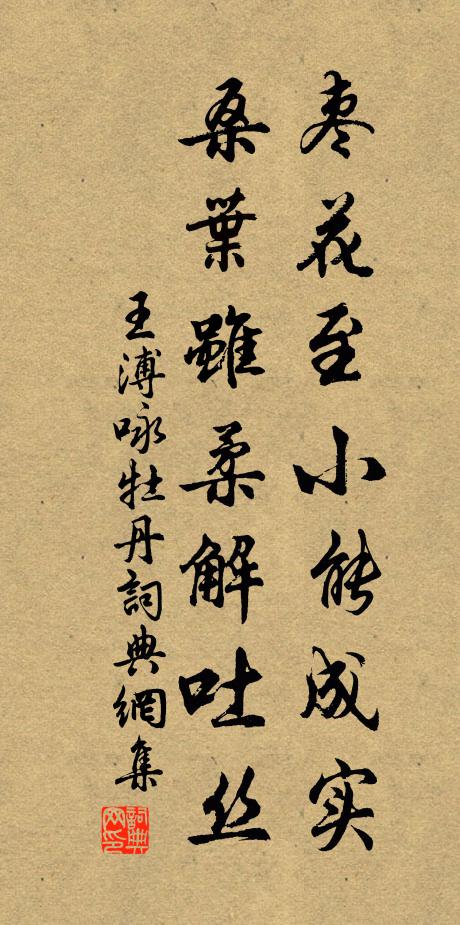 枣花至小能成实
桑葉雖柔解吐丝
王溥咏牡丹詞典網集
詞典网印